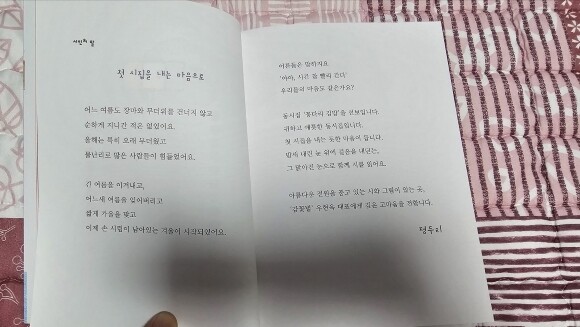 시인의 말
첫 시집을 내는 마음으로
어느 여름도 장마와 무더위를 건너지 않고
순하게 지나간 적은 없었어요.
올해는 특히 오래 무더웠고
물난리로 많은 사람들이 힘들었어요.
긴 여름을 이겨내고,
어느새 여름을 잊어버리고
짧게 가을을 맞고
이제 손 시림이 남아있는 겨울이 시작되었어요.
어른들은 말하지요
'아아, 시간 참 빨리 간다'
우리들의 마음도 같은가요?
동시집 '꽃다리 김밥'을 선보입니다.
귀하고 애틋한 동시집입니다.
첫 시집을 내는 듯한 마음이 듭니다.
밤새 내린 눈 위에 걸음을 내딛는,
그 맑아진 눈으로 함께 시를 읽어요.
아름다운 전원을 품고 있는 시와 그림이 있는 곳,
우현옥 대표에게 깊은 고마움을 전합니다.
정두리